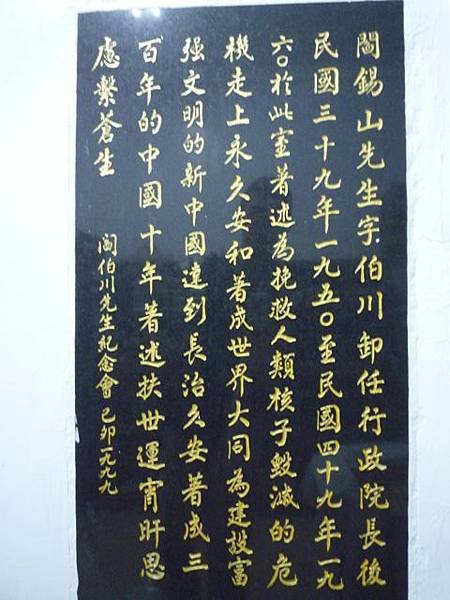 閻錫山先生字伯川卸任行政院長後
民國三十九年一九五〇至民國四十九年一九
六〇於此室著述為挽救人類核子毀滅的危
機走上永久安和著成世界大同為建設富
强文明的新中國達到長治久安著成三
百年的中國十年著述扶世運宵旰思
慮繫蒼生
閻伯川先生紀念會 己卯一九九九